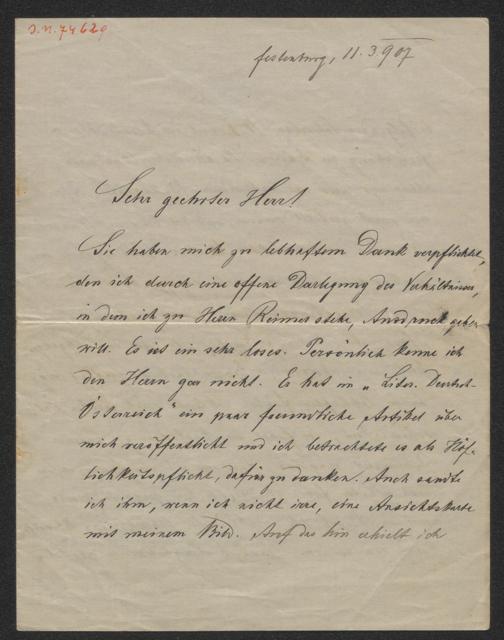 J.N. 74629
Festenburg, 11. 3. 907
Sehr geehrter Herr!
Sie haben mich zu lebhaftem Dank verpflichtet,
den ich durch eine offene Darlegung des Verhältnisses,
in dem ich zu Herrn Reimer stehe, Ausdruck geben
will. Es ist ein sehr loses. Persönlich kenne ich
den Herrn gar nicht. Er hat in „Liter. Deutsch-
Österreich" ein paar freundliche Artikel über
mich veröffentlicht und ich betrachtete es als Höf-
lichkeitspflicht, dafür zu danken. Auch sandte
ich ihm, wenn ich nicht irre, eine Ansichtskarte
mit meinem Bild. Auf das hin erhielt ich